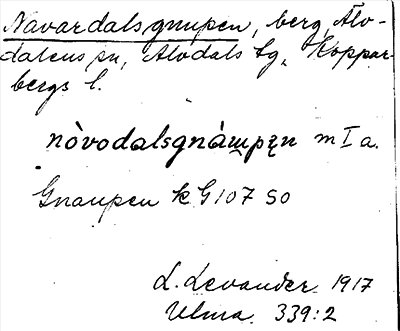 Navardalsgnupen, berg, Älv-
dalens sn, Älvdals tg, Koppar-
bergs l.
nòvodalsgnàɯpęn m I a.
Gnaupen k G 107 SO
L. Levander 1917
Ulma 339:2